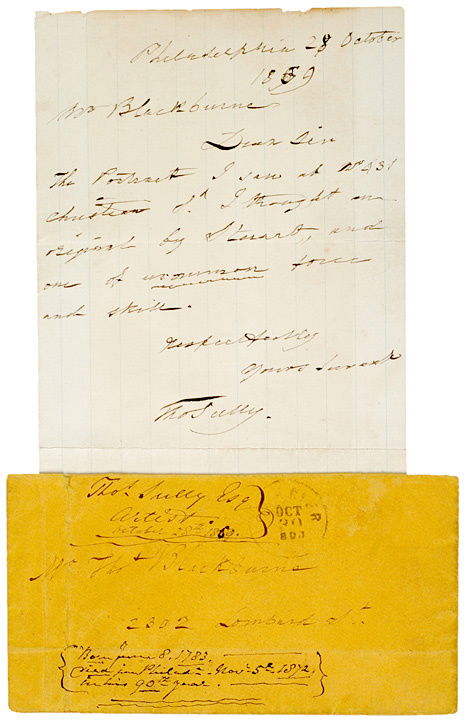 Philadelphia 28 October
1869
Mr Blackburne
Dear Sir
The Portrait I saw at No 431
Christian St. I thought an
original by Stuart, and
one of uncommon force
and skill.
respectfully
Yours
Tho Sully.
Thos. Sully Esq
Artist
October 28th 1869.
OCT
30
Mr Thos Blackburne
2302 Lombard St.
Born June 8. 1783.
died in Philada. Nov. 5th 1872,
in his 90th year.